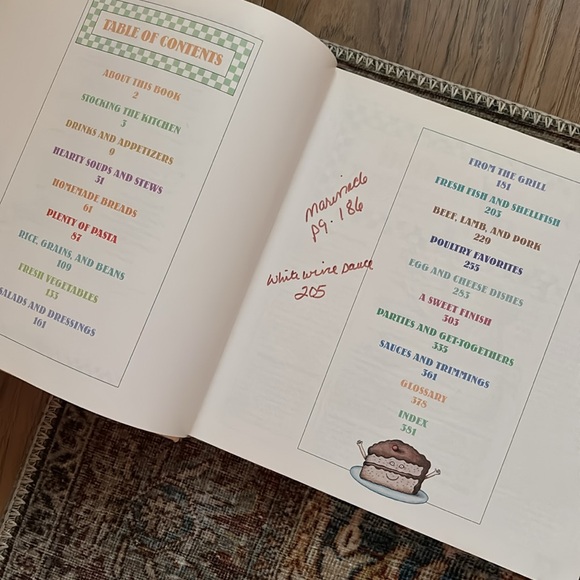 TABLE OF CONTENTS
ABOUT THIS BOOK
2
STOCKING THE KITCHEN
3
DRINKS AND APPETIZERS
9
HEARTY SOUPS AND STEWS
31
HOMEMADE BREADS
61
PLENTY OF PASTA
87
RICE, GRAINS, AND BEANS
109
FRESH VEGETABLES
133
SALADS AND DRESSINGS
161
marinade
pg. 186
White wine sauce
205
FROM THE GRILL
181
FRESH FISH AND SHELLFISH
203
BEEF, LAMB, AND PORK
229
POULTRY FAVORITES
255
EGG AND CHEESE DISHES
283
A SWEET FINISH
303
PARTIES AND GET-TOGETHERS
335
SAUCES AND TRIMMINGS
361
GLOSSARY
378
INDEX
381